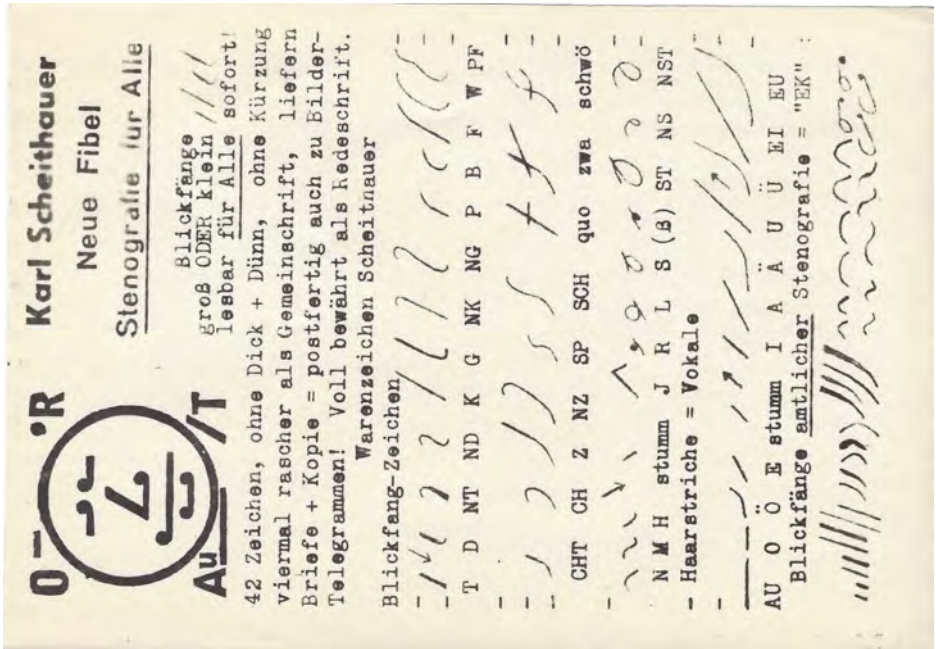 Karl Scheithauer
Neue Fibel
Stenografie für Alle
O R
Au T
Blickfänge
groß ODER klein
lesbar für Alle sofort!
42 Zeichen, ohne Dick + Dünn, ohne Kürzung
viermal rascher als Gemeinschrift, liefern
Briefe + Kopie = postfertig auch zu Bilder-
Telegrammen! Voll bewährt als Redeschrift.
Warenzeichen Scheithauer
Blickfang-Zeichen
T D NT ND K G NK NG P B F W PF
CHT CH Z NZ SP SCH quo zwa schwö
N M H stumm J R L S (ß) ST NS NST
- Haarstriche = Vokale
AU O Ö E stumm I A Ä U Ü EI EU
Blickfänge amtlicher Stenografie = "EK" :